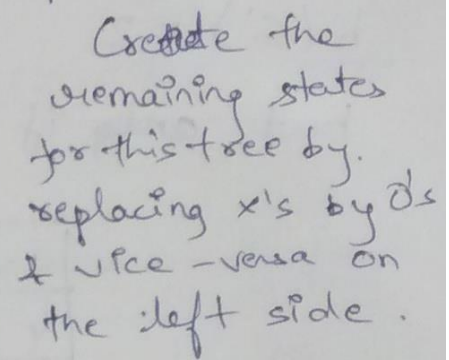 Create the
remaining states
for this tree by.
replacing x's by O's
& vice-versa on
the left side.